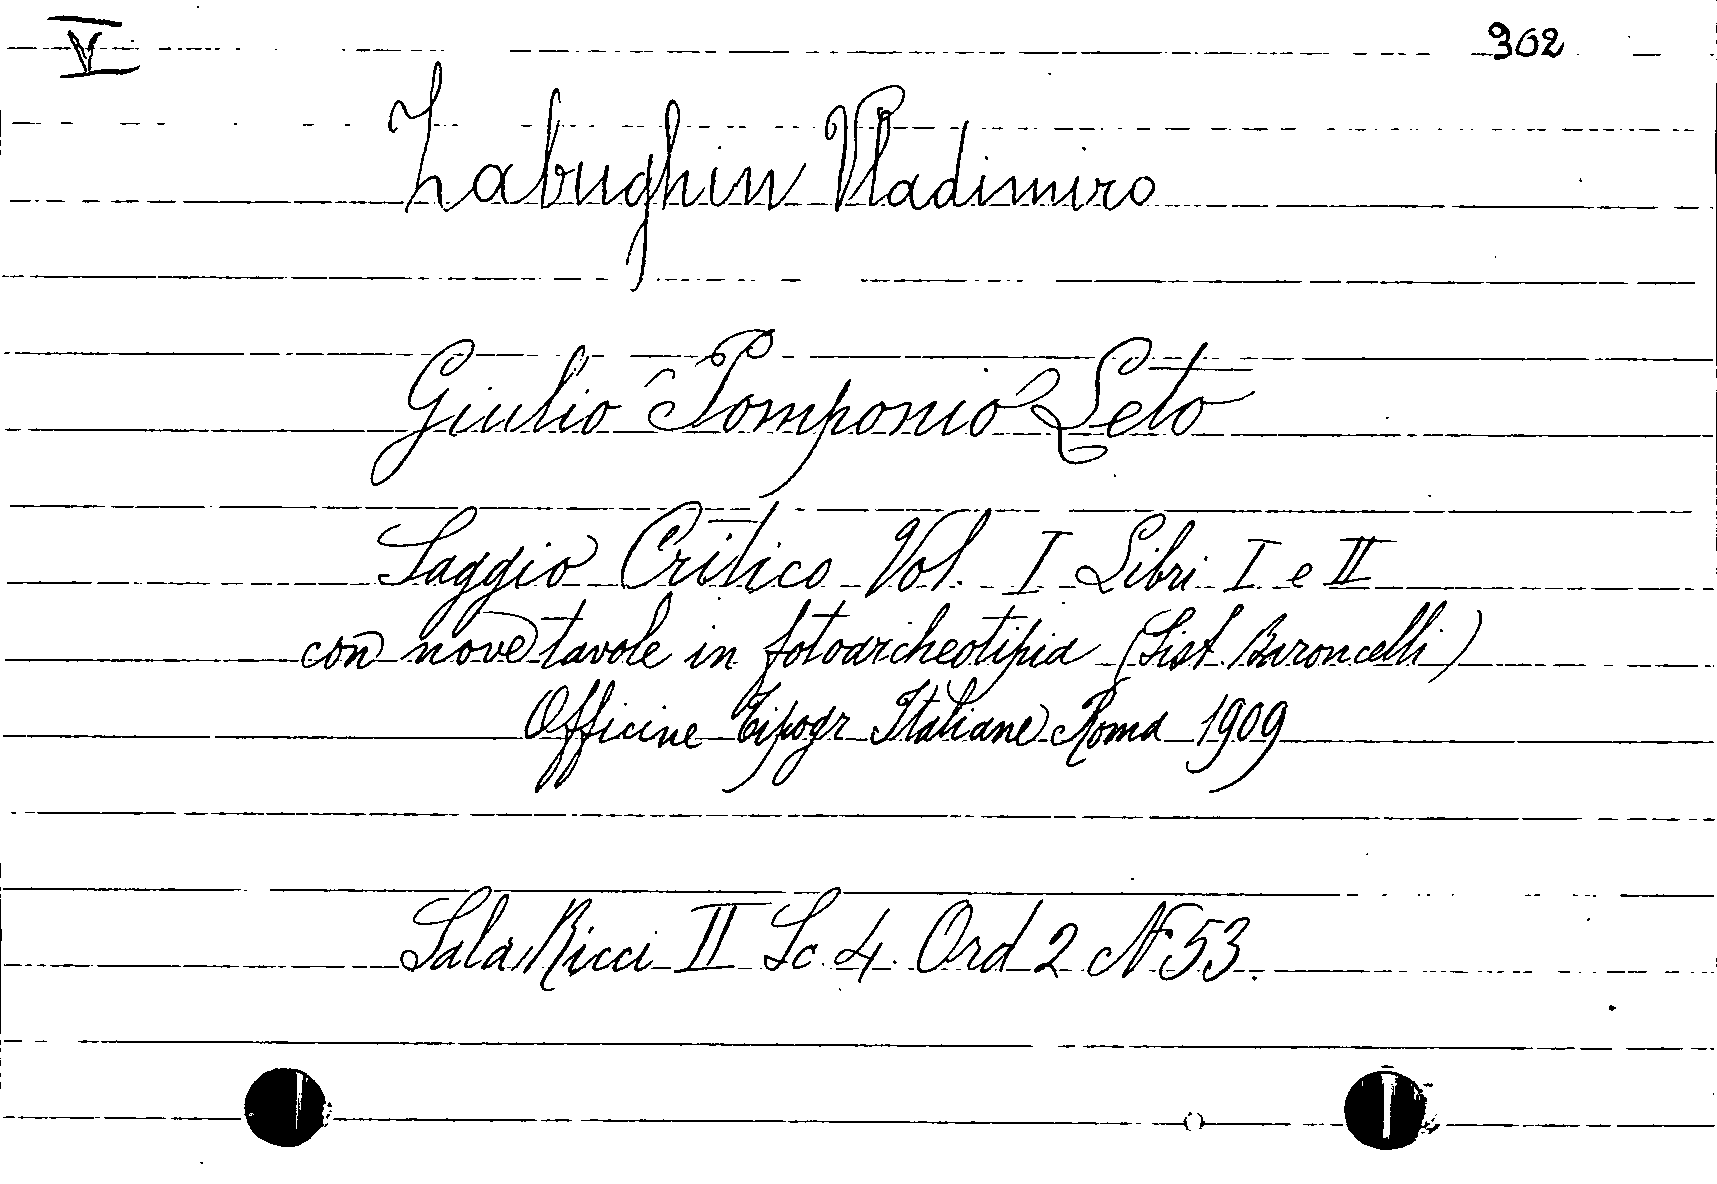 V 302
Zabughin Vladimiro
Giulio Pomponio Leto
Saggio Critico Vol. I Libri I e II
con nove tavole in fotoarcheotipia (Sist. Baroncelli)
Officine Tipogr Italiane Roma 1909
Sala Ricci II Sc. 4. Ord 2 N 53.